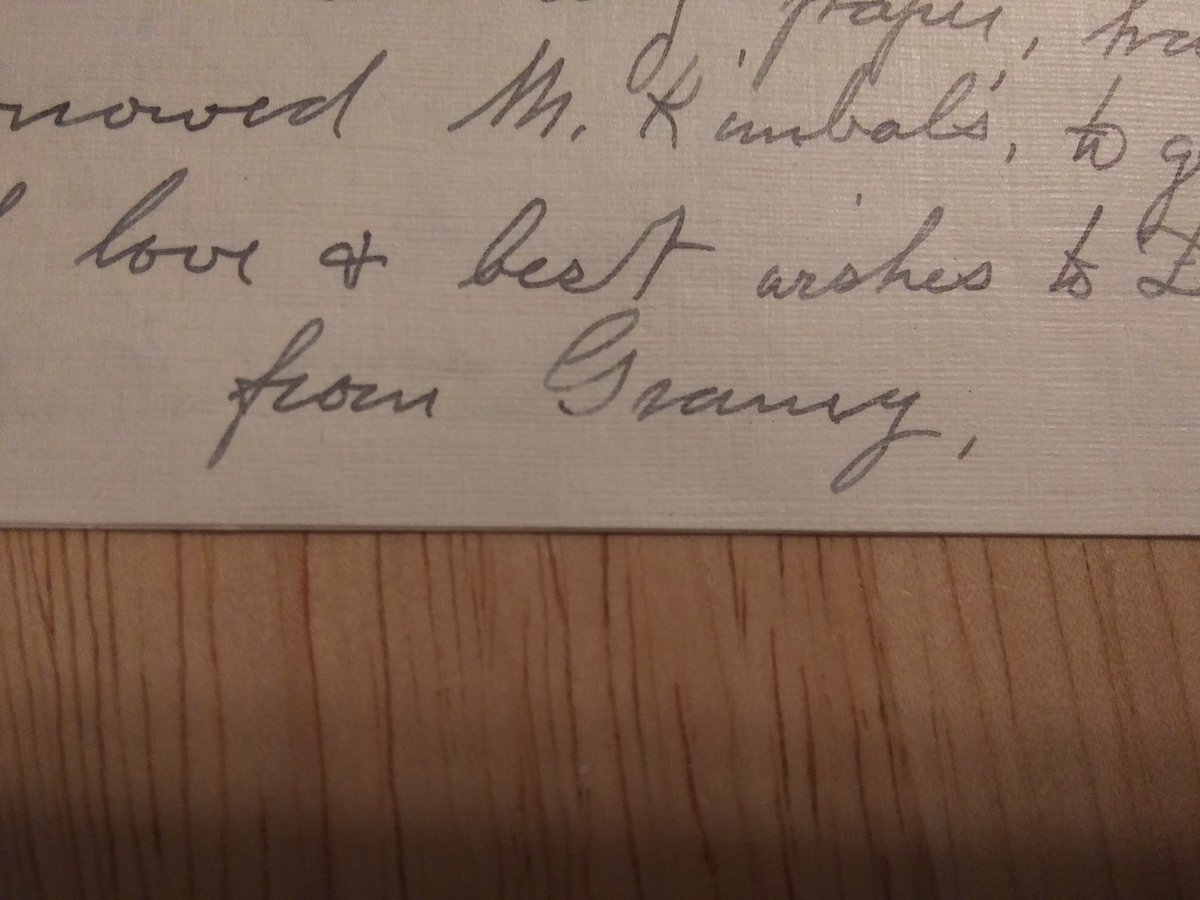 paper,
M. Kimbal's, to
love & best wishes to
from Granny,